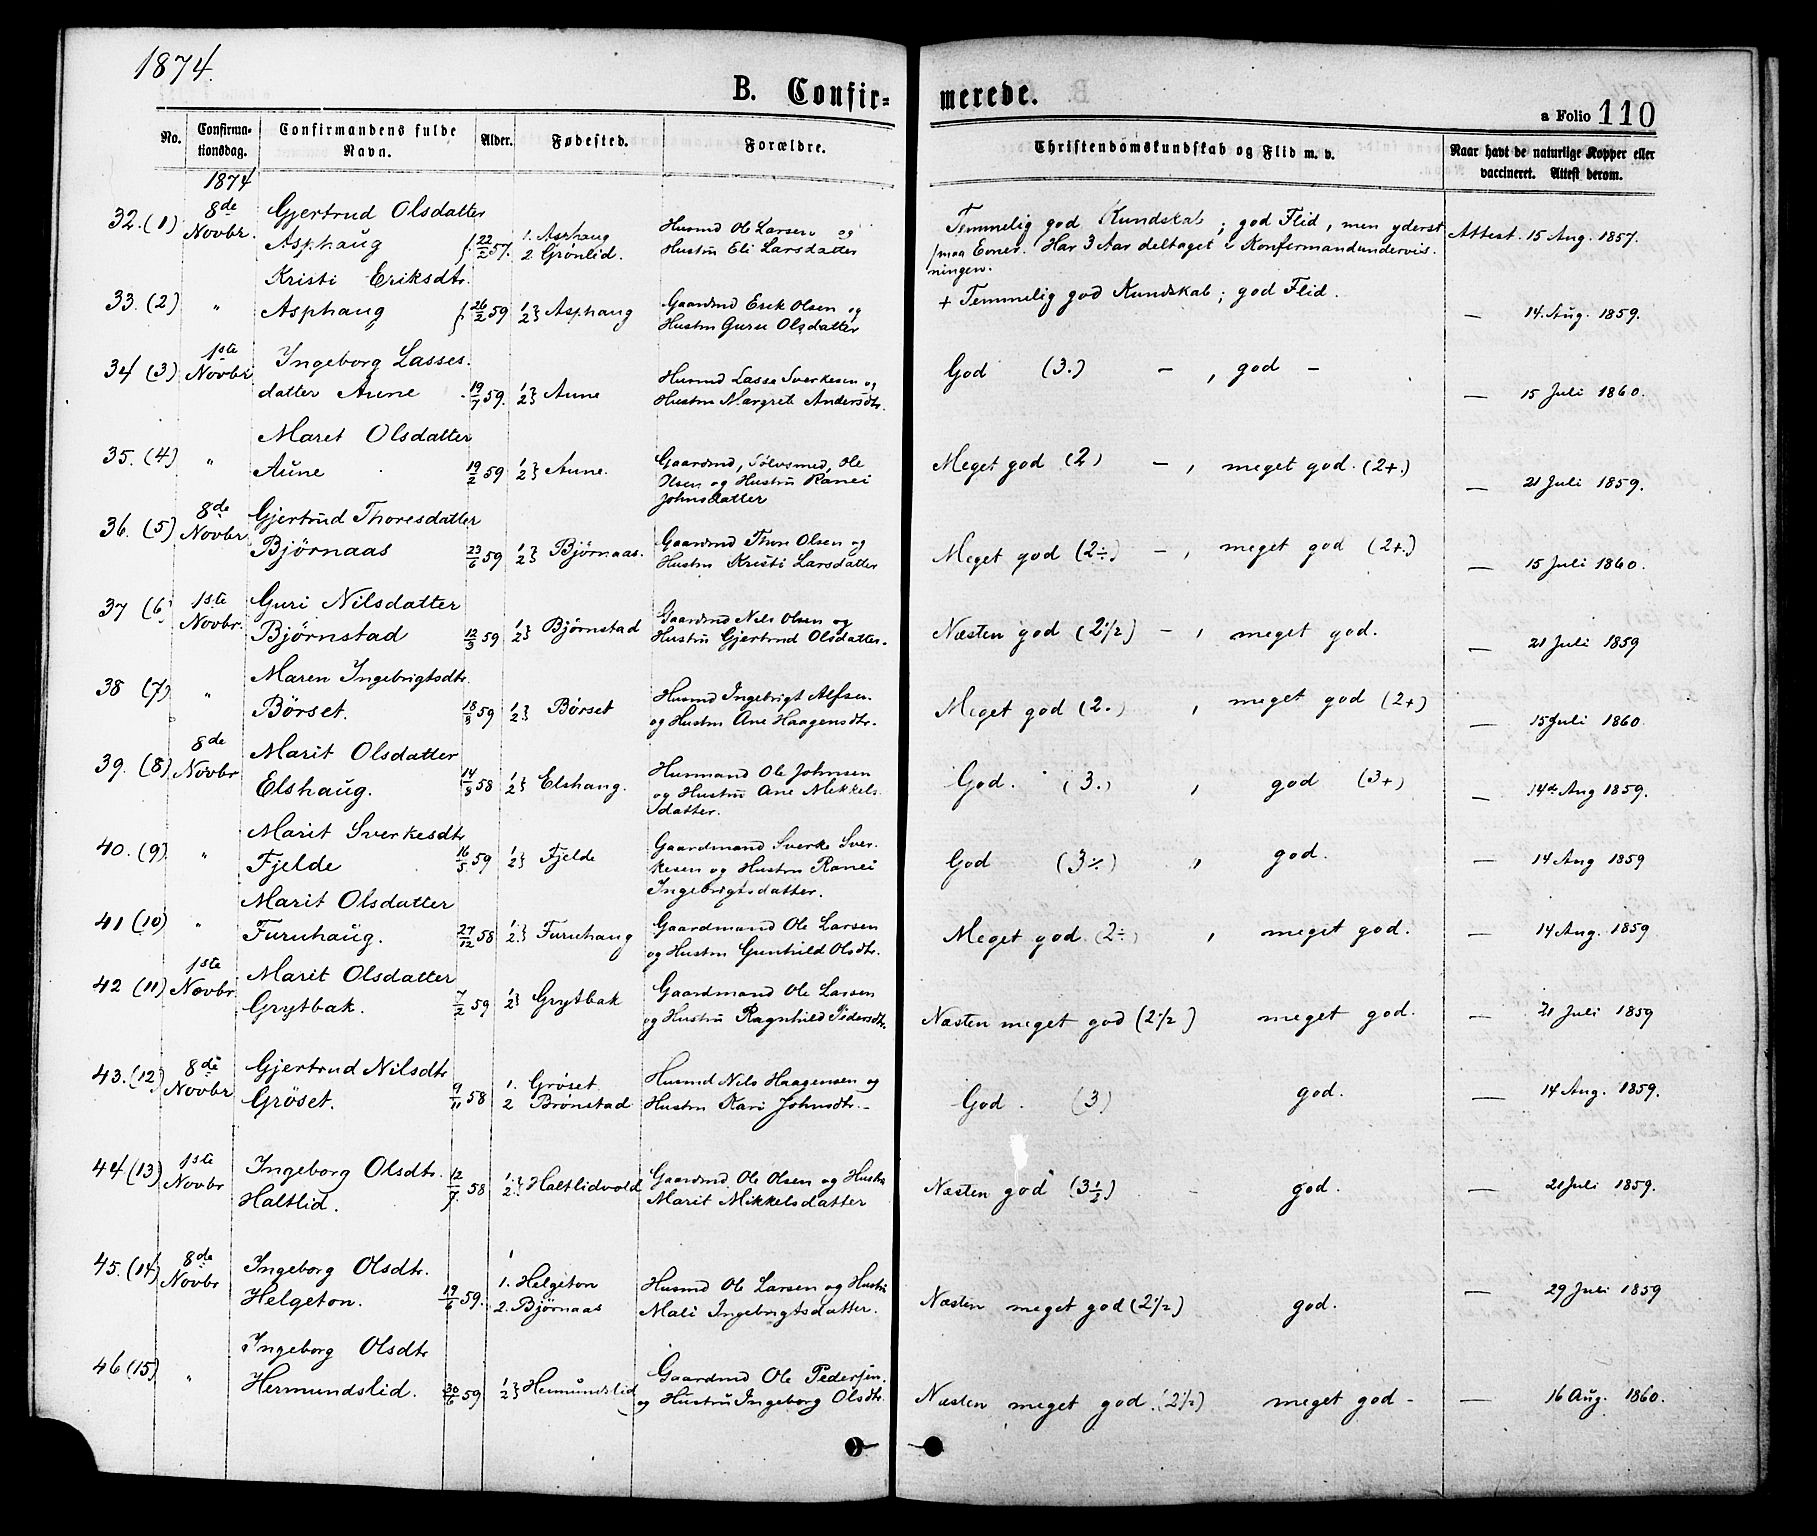 1874.
B. Confir-
merede.
a Folio 110
No.
Confirma-
tionsdag.
Confirmandens fulde
Navn.
Alder.
Fødested.
Forældre.
Christendomskundskab og Flid m. v.
Naar havt de naturlige Kopper eller
vaccineret. Attest derom.
1874
32. (1) 8de Novbr.
Gjertrud Olsdatter
Asphaug
22/2 57.
1. Asphaug
2. Grönlid.
Husmd Ole Larsen og
Hustru Eli Larsdatter
Temmelig god Kundskab; god Flid, men yderst
smaa Evner. Har 3 Aar deltaget i Konfirmandundervis-
ningen.
Attest. 15 Aug. 1857.
33. (2) "
Kristi Eriksdtr.
Asphaug
26/2 59
1/2} Asphaug
Gaardmd Erik Olsen og
Hustru Guru Olsdatter
+ Temmelig god Kundskab; god Flid.
— 14. Aug. 1859.
34 (3) 1ste Novbr
Ingeborg Lasses-
datter Aune
19/7 59.
1/2} Aune
Husmd Lasse Sverkesen og
Hustru Margrete Andersdtr.
God (3.) — , god —
— 15 Juli 1860.
35. (4) "
Maret Olsdatter
Aune
19/2 59
1/2} Aune.
Gaardmd, Sölvsmed, Ole
Olsen og Hustru Ranei
Johnsdatter
Meget god (2) — , meget god. (2+.)
— 21 Juli 1859.
36. (5) 8de Novbr
Gjertrud Thoresdatter
Björnaas
23/6 59
1/2} Björnaas.
Gaardmd Thore Olsen og
Hustru Kristi Larsdatter
Meget god (2÷) — , meget god (2+.)
— 15 Juli 1860.
37 (6) 1ste Novbr.
Guri Nilsdatter
Björnstad
12/3 59
1/2} Björnstad
Gaardmd Nils Olsen og
Hustru Gjertrud Olsdatter.
Næsten god (2 1/2) — , meget god.
— 21 Juli 1859
38 (7) "
Maren Ingebrigtsdtr.
Börset.
18/3 59
1/2} Börset
Husmd Ingebrigt Alfsen
og Hustru Ane Haagensdtr.
Meget god (2.) , meget god (2+)
— 15 Juli 1860.
39. (8) 8de Novbr
Marit Olsdatter
Elshaug.
14/3 58
1/2} Elshaug.
Husmand Ole Johnsen
og Hustru Ane Mekkels-
datter.
God. (3.) , god (3+)
— 14de Aug 1859.
40. (9) "
Marit Sverkesdtr
Fjelde
16/5 59
1/2} Fjelde
Gaardmand Sverke Sver-
kesen og Hustru Ranei
Ingebrigtsdatter.
God (3÷) , god.
— 14 Aug 1859
41 (10) "
Marit Olsdatter
Furuhaug.
27/12 58
1/2.} Furuhaug
Gaardmand Ole Larsen
og Hustru Gunhild Olsdtr.
Meget god. (2÷) , meget god.
— 14 Aug. 1859
42 (11) 1ste Novbr
Marit Olsdatter
Grytbak.
7/2 59
1/2} Grytbak
Gaardmand Ole Larsen
og Hustru Ragnhild Pedersdtr.
Næsten meget god (2 1/2) meget god.
— 21 Juli 1859
43. (12) 8de Novbr
Gjertrud Nilsdtr
Gröset.
9/11 58
1. Gröset.
2 Brönstad
Husmd Nils Haagensen og
Hustru Kari Johnsdtr.-
God. (3) god.
— 14 Aug. 1859.
44 (13) 1ste Novbr
Ingeborg Olsdtr.
Haltlid.
12/7 58
1/2} Haltlidvold
Gaardmd. Ole Olsen og Hustru
Marit Mikkelsdatter
Næsten god (3 1/2) - god.
— 21 Juli 1859.
45. (14) 8de Novbr
Ingeborg Olsdtr.
Helgeton.
19/6 59.
1. Helgeton
2. Björnaas
Husmd Ole Larsen og Hustru
Mali Ingebrigtsdatter.
Næsten meget god (2 1/2) god.
— 29 Juli 1859
46 (15) "
Ingeborg Olsdtr
Hermundslid.
30/6 59
1/2} Hermundslid
Gaardmd Ole Pedersen.
og Hustru Ingeborg Olsdtr.
Næsten meget god. (2 1/2) meget god -
— 16 Aug. 1860.